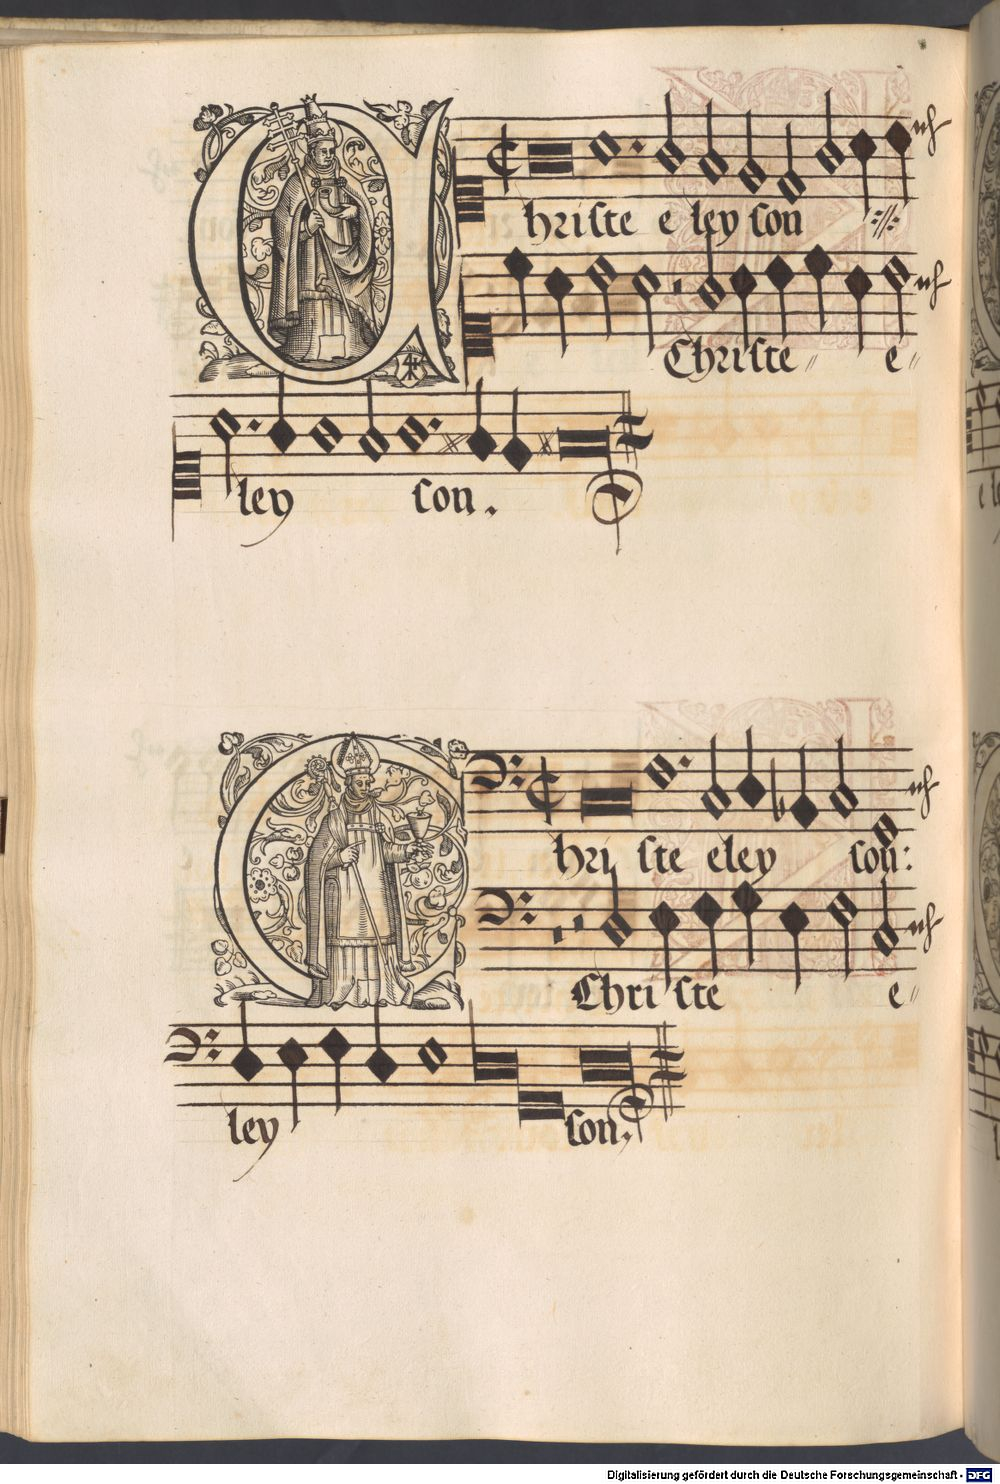 Christe e ley son ://:
Christe // e //
ley son.
Chri ste eley son:
Christe e //
ley son.
Digitalisierung gefördert durch die Deutsche Forschungsgemeinschaft - DFG